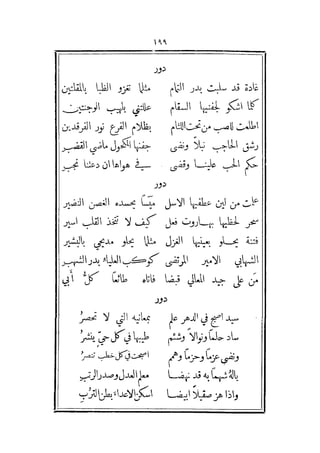 ١٩٩
دور
غادة قد سلبت بدر التمام مثلما تغزو الظبا بالمقلتين
كلما اشكو لجفنيها السقام عللتني بلهيب الوجنتين
اطلعت للصب من تحت اللثام بظلام الفرع نور الفرقدين
رشق الحاجب نبلاً ونضى جفنها المكحول ماضي القضب
حكم الحب علينا وقضى في هواها ان دعتنا نجب
دور
علمت من لين عطفيها الاسل ميساً يحسده الغصن النضير
سحر لحظيها بهاروت فعل كيف لا تتخذ القلب اسير
فتنة يحلو بعينيها الغزل مثلما يحلو مديحي بالبشير
الشهابي الامير المرتضى كوكب العلياء بدر الشهب
من على جيد المعالي قبضا فاتاه طائعاً كلُّ أبي
دور
سيد اصبح في الدهر علم بمعانيه التي لا تحصرُ
ساد حلماً ونوالاً وشيم طيبها في كل حيٍّ ينشرُ
ونضى عزماً وحزماً وهمم اصبحت في كل خطب تنصرُ
يالهُ شهماً به قد نهضا معلم العدل وصدر الرتبِ
واذا هز صقيلاً ابيضا اسكن الاعداء بطن التربِ